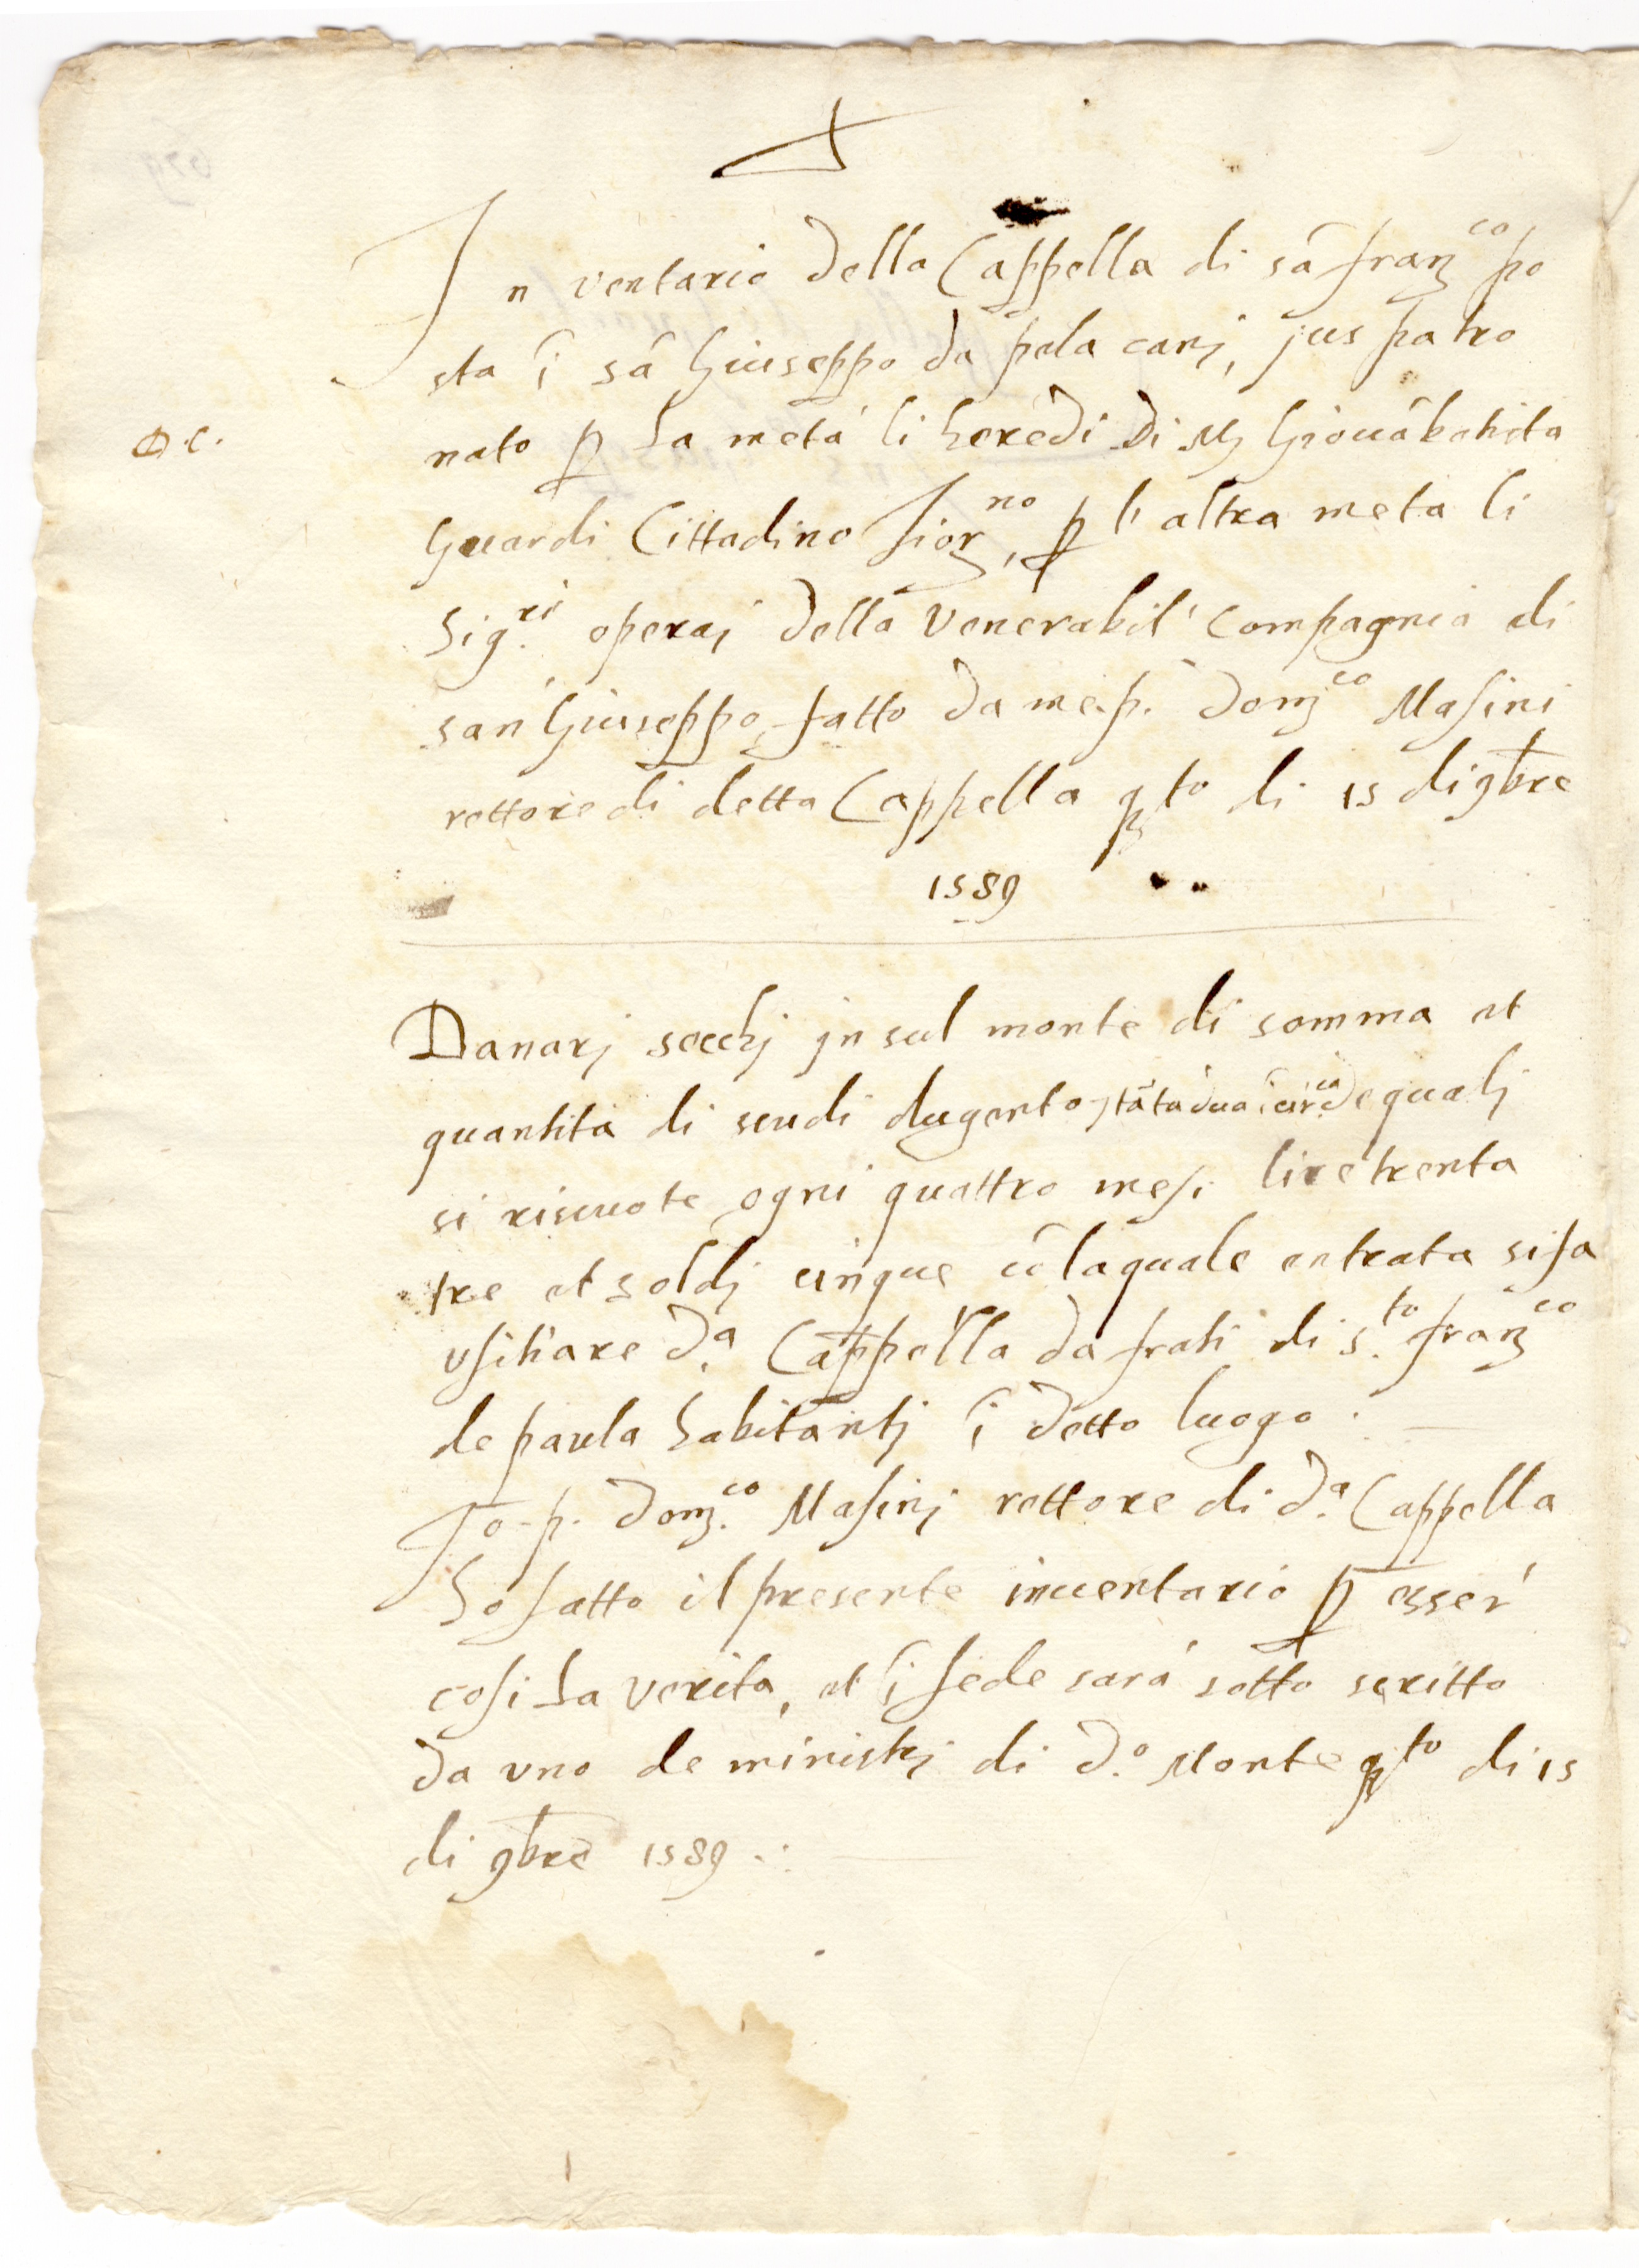 In ventario della Cappella di sã franz.co po
sta ĩ sã Giuseppo da pela canj, jus patro
nato p la metá li heredi di M Giouãbatista
Guardi Cittadino fior.no, p l'altra meta li
Sig.ri operaj della venerabil' compagnia di
san Giuseppo fatto da me p. Dom.co Masini
rettore di detta Cappella q.to di 15 di 9bre
1589
D. c.
Danarj secchj in sul monte di somma et
quantità di scudi dugento ĩ circa de qualj
si riscuote ogni quattro mesi lire trenta
tre et soldj cinque cõ la quale entrata si fa
ufitiare d.a Cappella da frati di s.to franz.co
de paula habitantj ĩ detto luogo.
Io p. Dom.co Masinj rettore di d.a Cappella
ho fatto il presente inventario p esser'
cosi la verita, et ĩ fede sará sotto scritto
da uno de ministrj di d.o Monte q.to di 15
di 9bre 1589